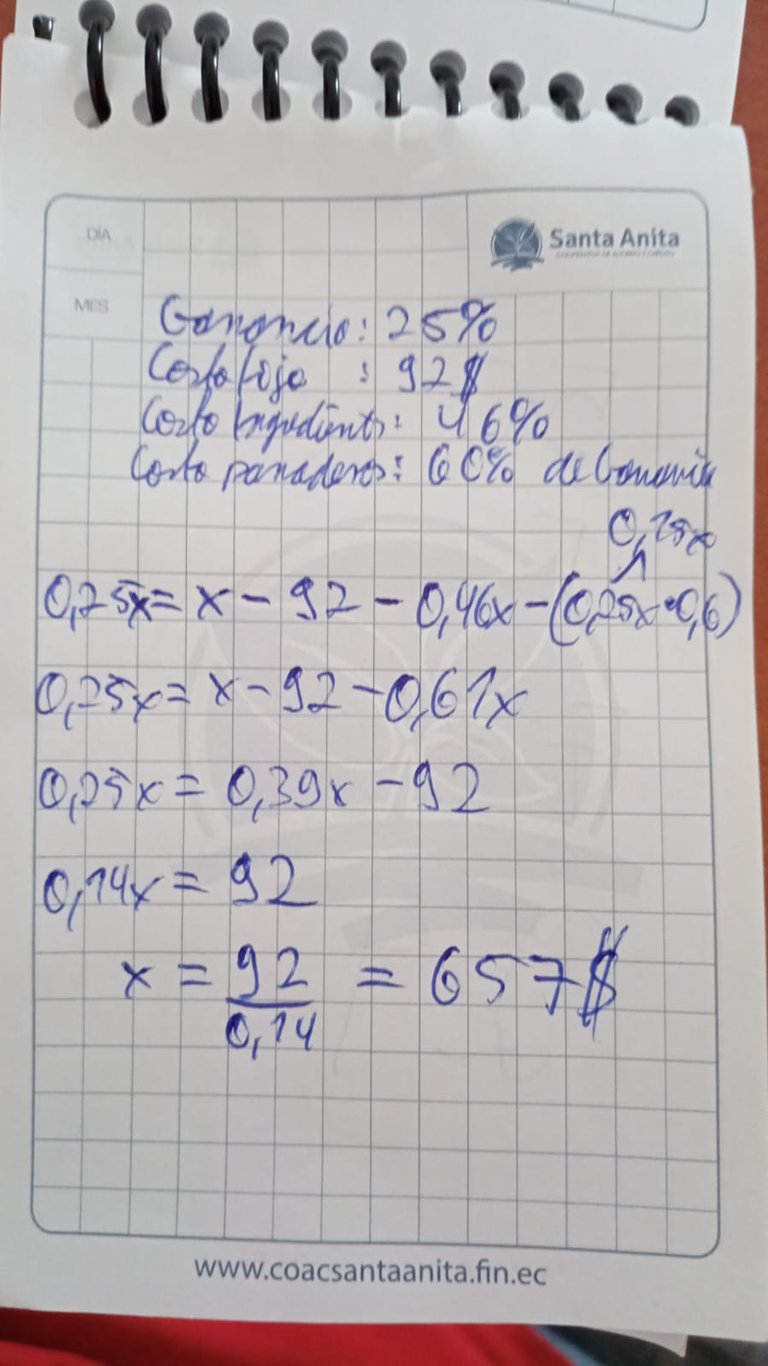 DÍA
Santa Anita
MES
Ganancia: 25%
Costo fijo : 92$
Costo Ingredients: 46%
Costo panaderos: 60% de Ganancia
0,25x
0,25x = x - 92 - 0,46x - (0,25x • 0,6)
0,25x = x - 92 - 0,61x
0,25x = 0,39x - 92
0,14x = 92
x = 92/0,14 = 657$
www.coacsantaanita.fin.ec